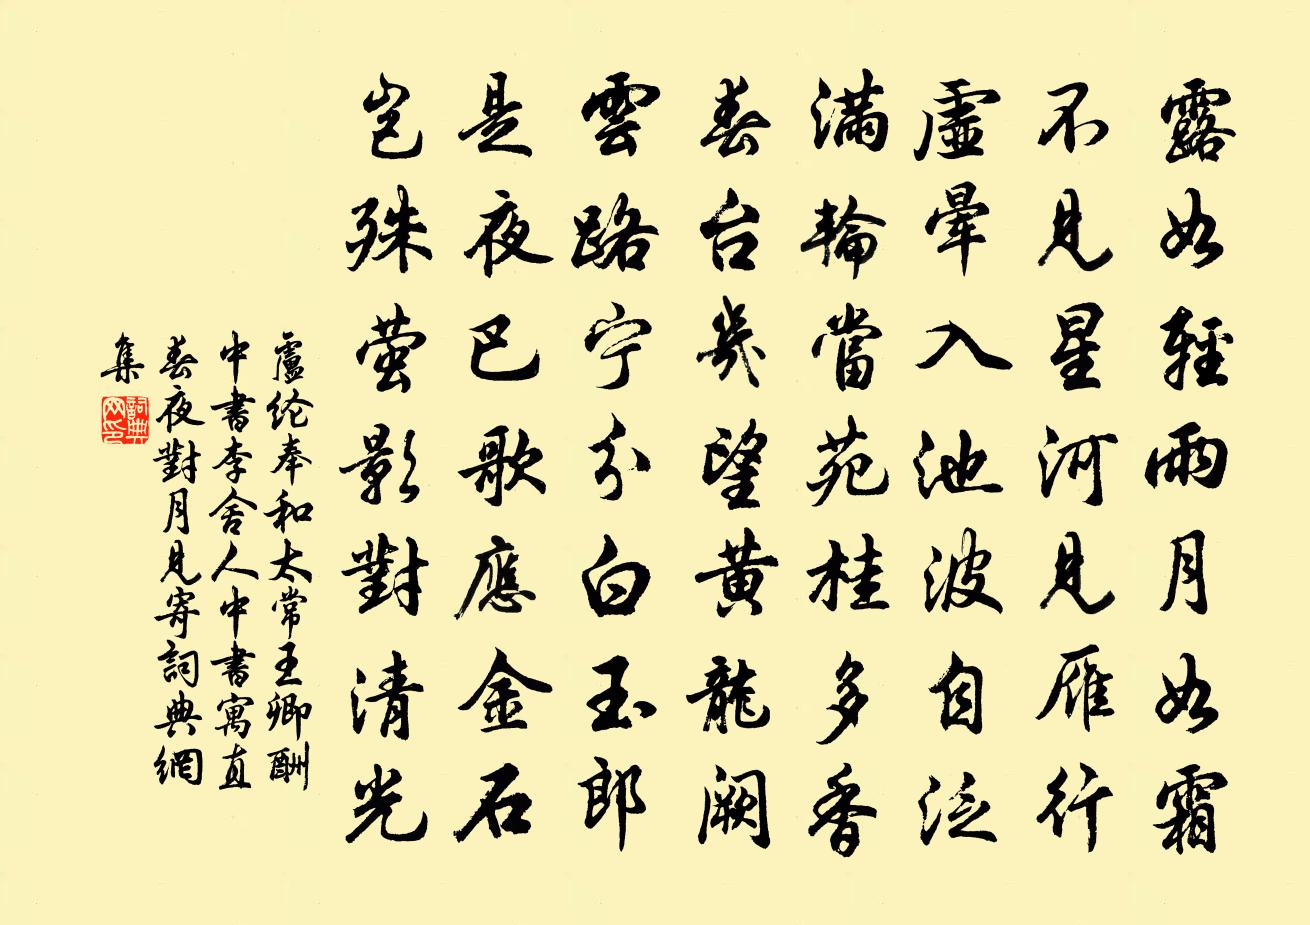 露如輕雨月如霜
不見星河見雁行
虛暈入池波自泛
滿輪當苑桂多香
春台幾望黃龍闕
雲路寧分白玉郎
是夜巴歌應金石
豈殊螢影對清光
盧纶奉和太常王卿酬
中書李舍人中書寓直
春夜對月見寄詞典網
集
詞典
网印